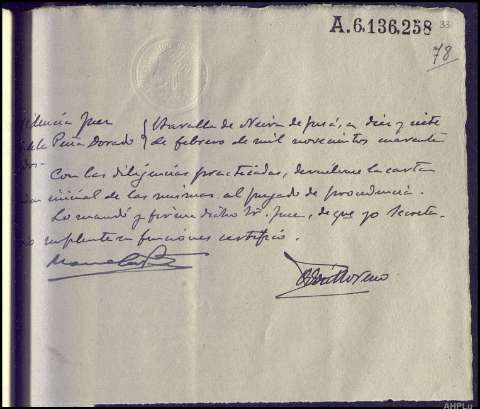 A.6.136.258 33
78
Juez
Peña Dorado } Baralla de Neira de Jusá, a diez y siete
de febrero de mil novecientos cuarenta
Con las diligencias practicadas, devuelvase la carta
de las mismas, al juzgado de procedencia.
Lo mandó y firma dicho Sr. Juez, de que yo Secreta-
rio suplente en funciones certifico.
Moreno
AHPLu